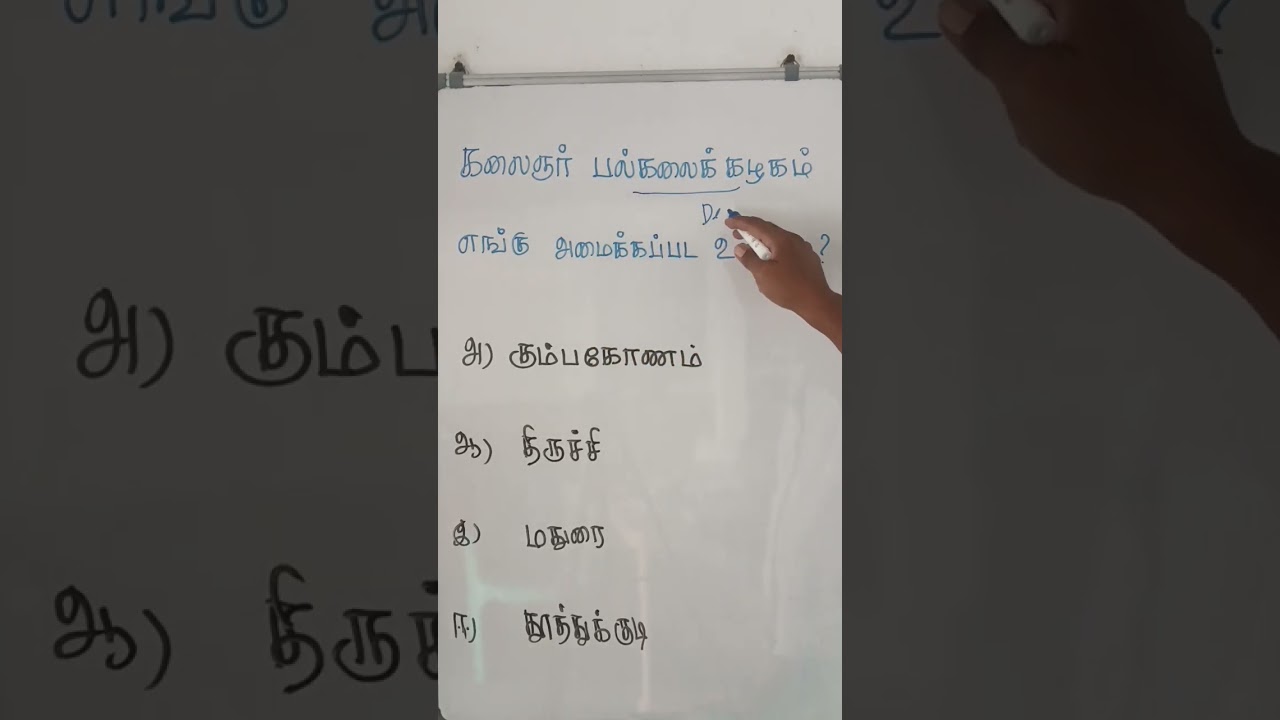 கலைஞர் பல்கலைக் கழகம்
எங்கு அமைக்கப்பட உ ?
அ) கும்பகோணம்
ஆ) திருச்சி
இ) மதுரை
ஈ) தூத்துக்குடி